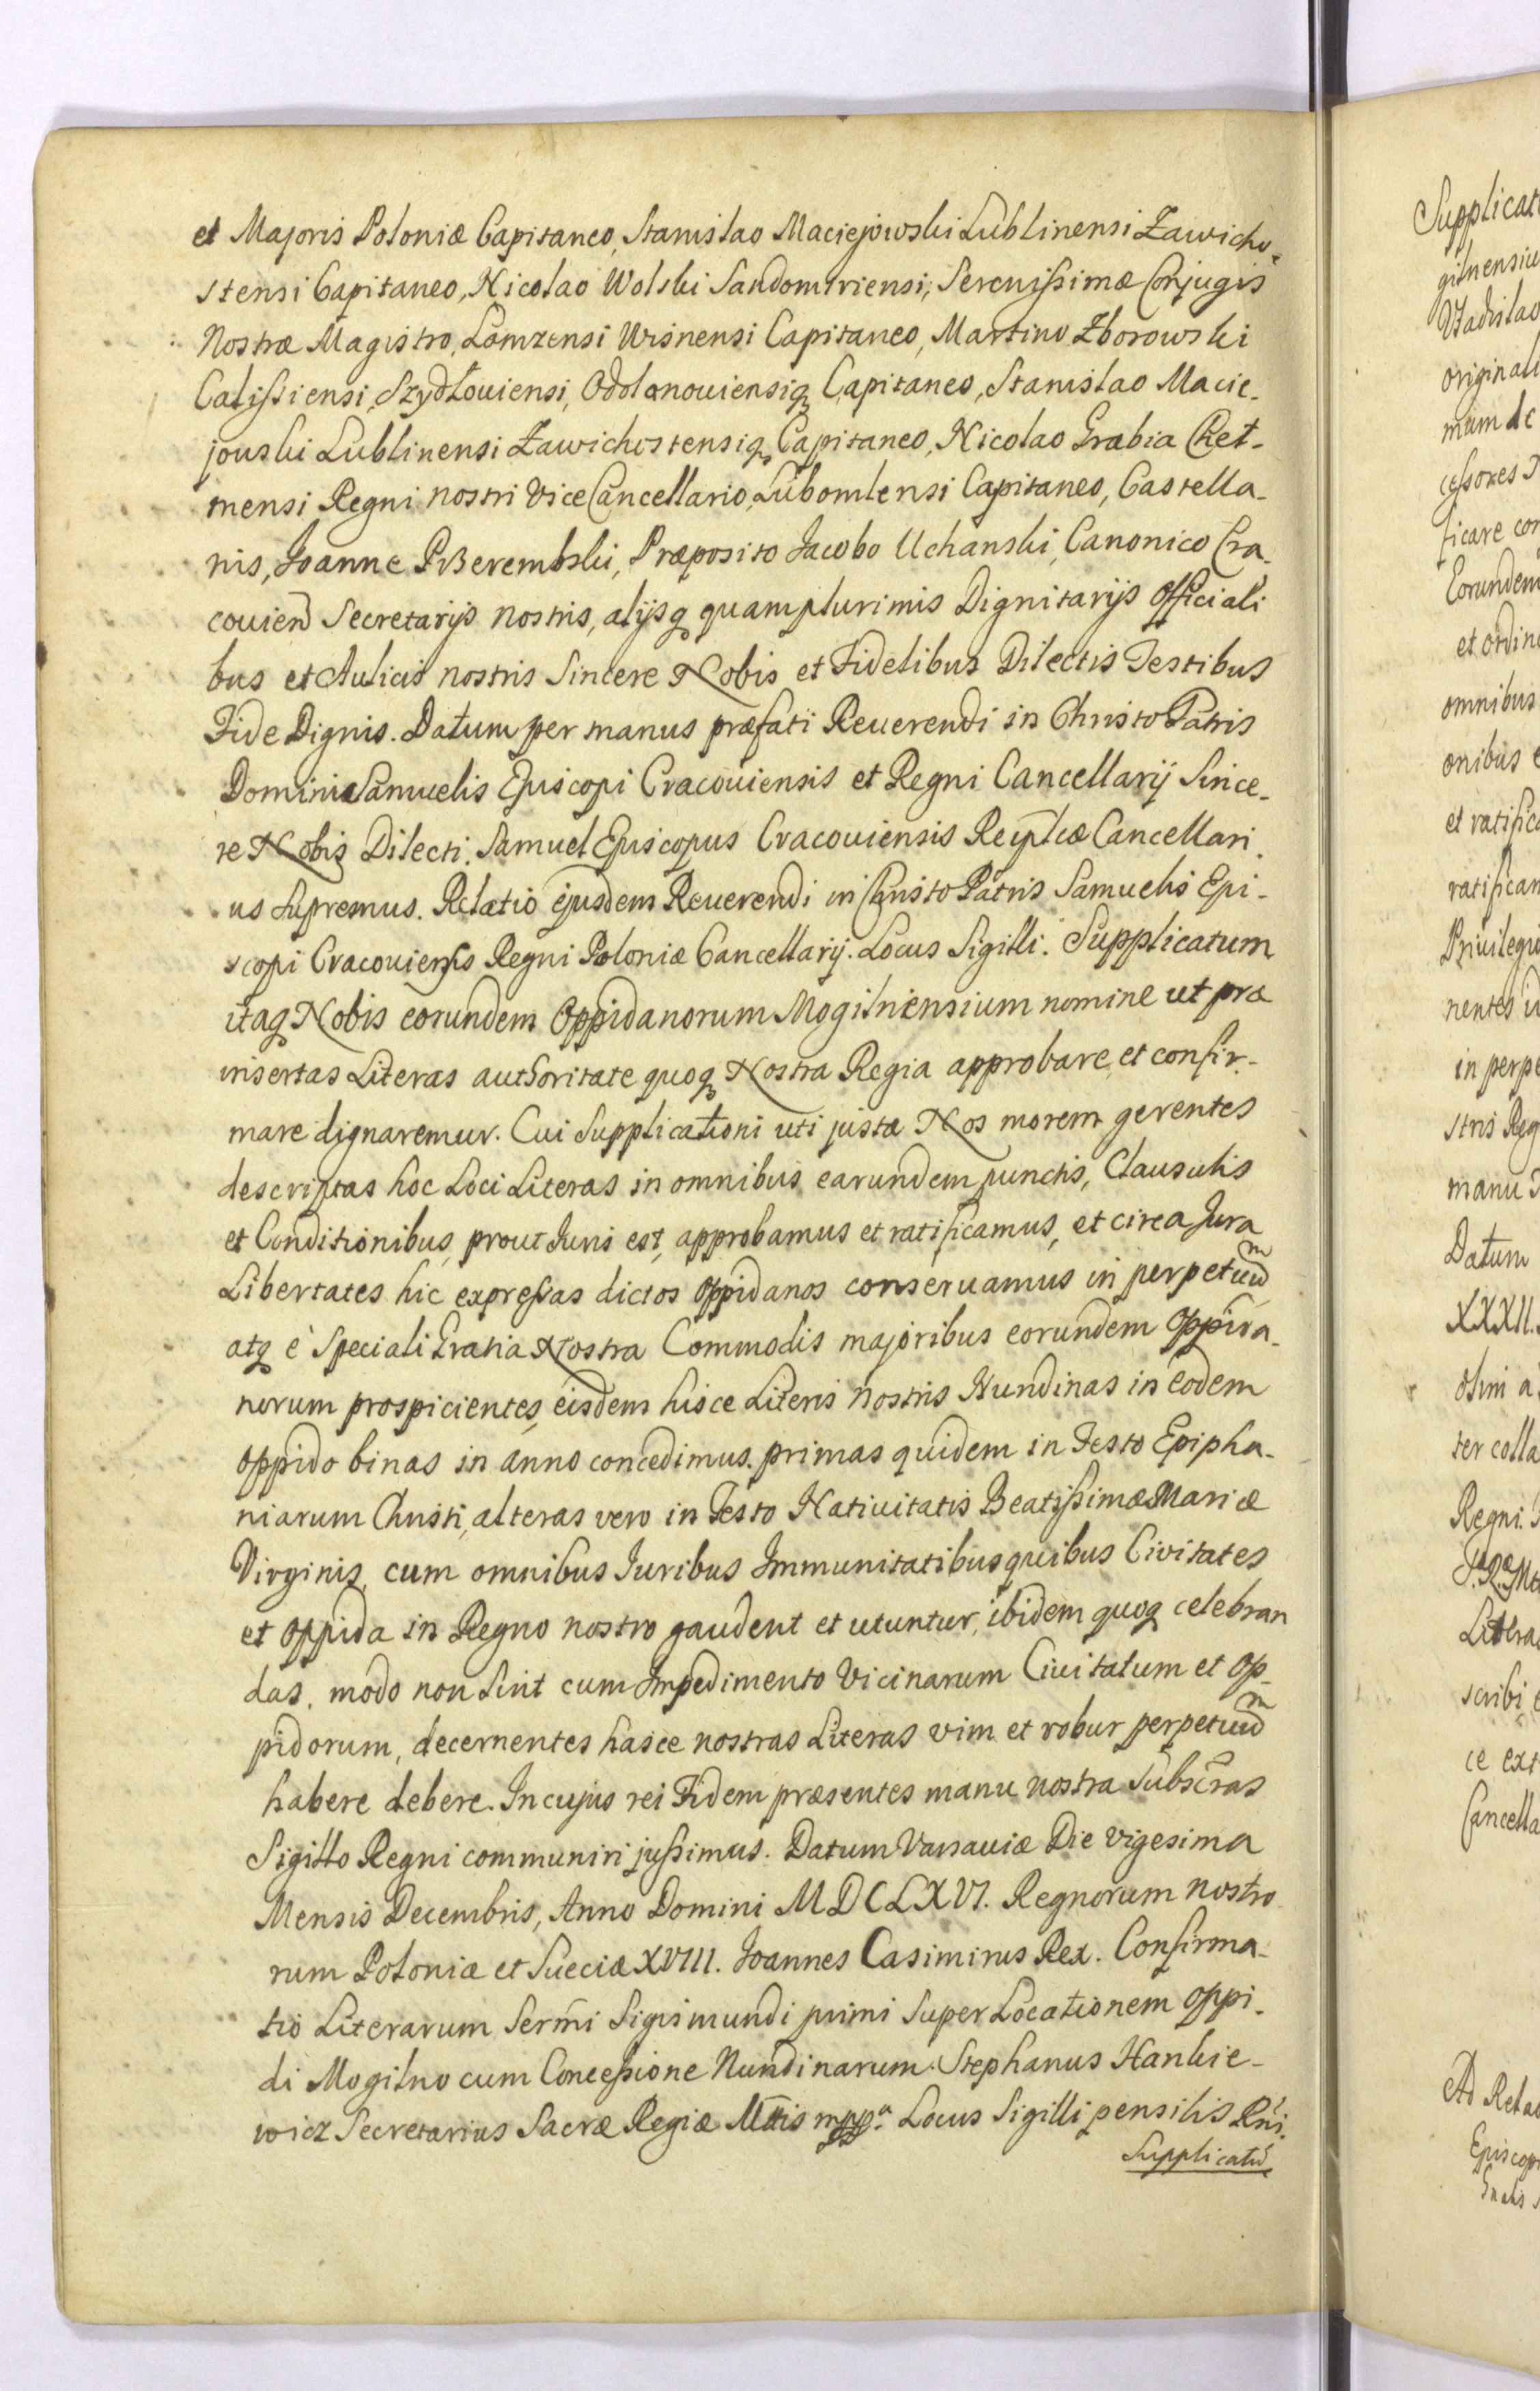 et Majoris Poloniæ Capitaneo, Stanislao Maciejowski Lublinensi Zawicho-
stensi Capitaneo, Nicolao Wolski Sandomiriensi, Serenissimæ Conjugis
Nostræ Magistro, Lomzensi Wisnensi Capitaneo, Martino Zborowski
Calissiensi, Szydłouiensi, Odolanouiensiq Capitaneo, Stanislao Macie-
jouski Lublinensi Zawichostensiq Capitaneo, Nicolao Grabia Cheł-
mensi Regni nostri Vice Cancellario, Lubomlensi Capitaneo, Castella-
nis, Joanne PrZerembski, Præposito Jacobo Uchanski, Canonico Cra-
couien Secretarijs nostris, alijsq quamplurimis Dignitarijs Officiali
bus et Aulicis nostris Sincere Nobis et Fidelibus Dilectis Testibus
Fide Dignis. Datum per manus præfati Reuerendi in Christo Patris
Domini Samuelis Episcopi Cracouiensis et Regni Cancellarij Since-
re Nobis Dilecti. Samuel Episcopus Cracouiensis Reiplcæ Cancellari
us Supremus. Relatio ejusdem Reuerendi in Christo Patris Samuelis Epi-
scopi Cracouiensis Regni Poloniæ Cancellarij. Locus Sigilli. Supplicatum
itaq Nobis eorundem Oppidanorum Mogilniensium nomine ut præ
insertas Literas authoritate quoq Nostra Regia approbare et confir-
mare dignaremur. Cui Supplicationi uti justæ Nos morem gerentes
descriptas hoc Loci Literas in omnibus earundem punctis, Clausulis
et Conditionibus, prout Juris est, approbamus et ratificamus, et circa Jura
Libertates hic expressas dictos Oppidanos conseruamus in perpetuum
atq è Speciali Gratia Nostra Commodis majoribus eorundem Oppida-
norum prospicientes, eisdem hisce Literis nostris Nundinas in eodem
Oppido binas in anno concedimus. primas quidem in Festo Epipha-
niarum Christi, alteras vero in Festo Natiuitatis Beatissimæ Mariæ
Virginis, cum omnibus Juribus Immunitatibus quibus Civitates
et Oppida in Regno nostro gaudent et utuntur, ibidem quoq celebran
das. modo non Sint cum Impedimento Vicinarum Ciuitatum et Op-
pidorum, decernentes hasce nostras Literas vim et robur perpetuum
habere debere. In cujus rei Fidem præsentes manu nostra Subscras
Sigillo Regni communiri jussimus. Datum Varsauiæ Die vigesima
Mensis Decembris, Anno Domini MDCLXVI. Regnorum nostro
rum Poloniæ et Sueciæ XVIII. Joannes Casimirus Rex. Confirma-
tio Literarum Sermi Sigismundi primi Super Locationem Oppi-
di Mogilno cum Concessione Nundinarum. Stephanus Hankie-
wicz Secretarius Sacræ Regiæ Mttis mppa. Locus Sigilli pensilis Rni.
Supplicatu

Supplicat
gilnensiu
Vładislao
originali
mum de
cessores
ficare con
Eorundem
et ordin
omnibus
onibus e
et ratific
ratifican
Priuilegi
nentes
in perpe
stris Reg
manu
Datum
XXXII.
olim a
ter colla
Regni.
Literas
scribi
ce ext
Cancella
Ad Relat
Episcop